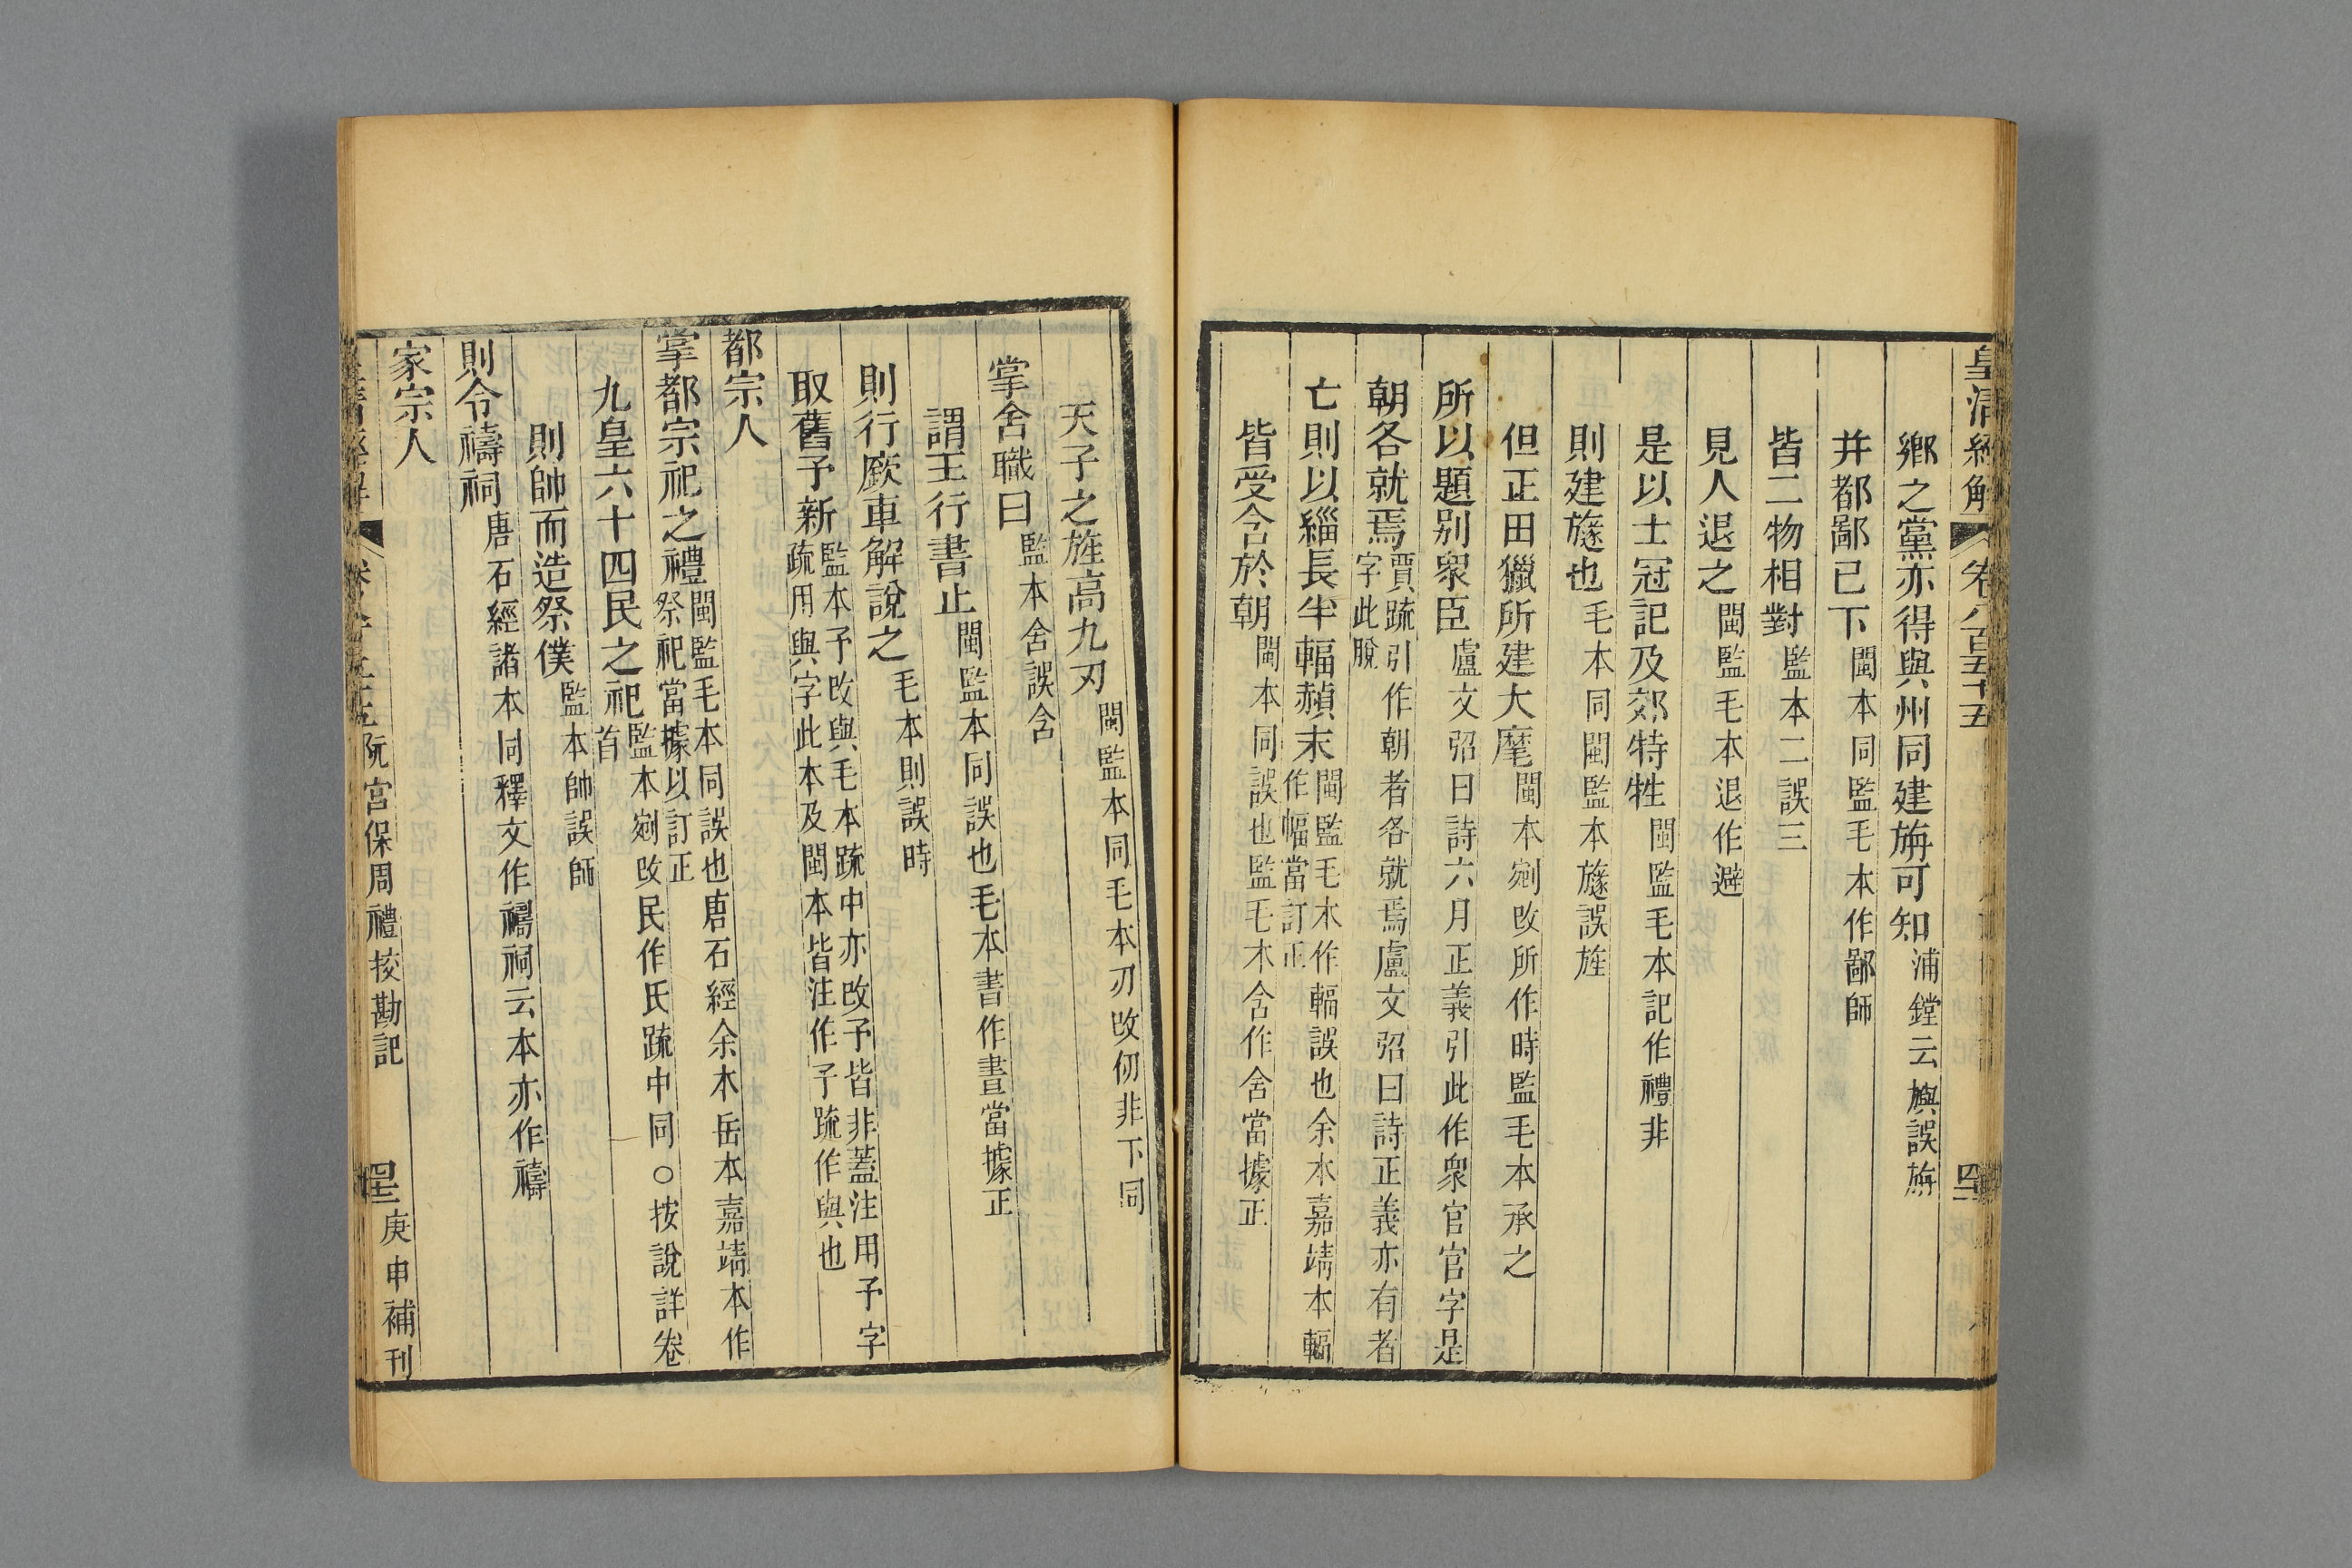 皇清經解 卷八百五十五
鄉之黨亦得與州同建旃可知浦鏜云旟誤旃
并都鄙已下閩本同監毛本作鄙師
皆二物相對監本二誤三
見人退之閩監毛本退作避
是以士冠記及郊特牲閩監毛本記作禮非
則建旞也毛本同閩監本旞誤旌
但正田獵所建大麾閩本剜改所作時監毛本承之
所以題别衆臣盧文弨曰詩六月正義引此作衆官官字是
朝各就焉賈疏引作朝者各就焉盧文弨曰詩正義亦有者字此脫
亡則以緇長半輻赬末閩監毛本作輻誤也余本嘉靖本輻作幅當訂正
皆受含於朝閩本同誤也監毛本含作舍當據正
天子之旌高九刃閩監本同毛本刃改仞非下同
掌舍職曰監本舍誤含
謂王行書止閩監本同誤也毛本書作晝當據正
則行廞車解說之毛本則誤時
取舊予新監本予改與毛本疏中亦改予皆非蓋注用予字疏用與字此本及閩本皆注作予疏作與也
都宗人
掌都宗祀之禮閩監毛本同誤也唐石經余本岳本嘉靖本作祭祀當據以訂正
九皇六十四民之祀監本剜改民作氏疏中同○按說詳卷首
則帥而造祭僕監本帥誤師
則令禱祠唐石經諸本同釋文作禂祠云本亦作禱
家宗人
皇清經解 卷八百五十五 阮宮保周禮挍勘記 庚申補刊